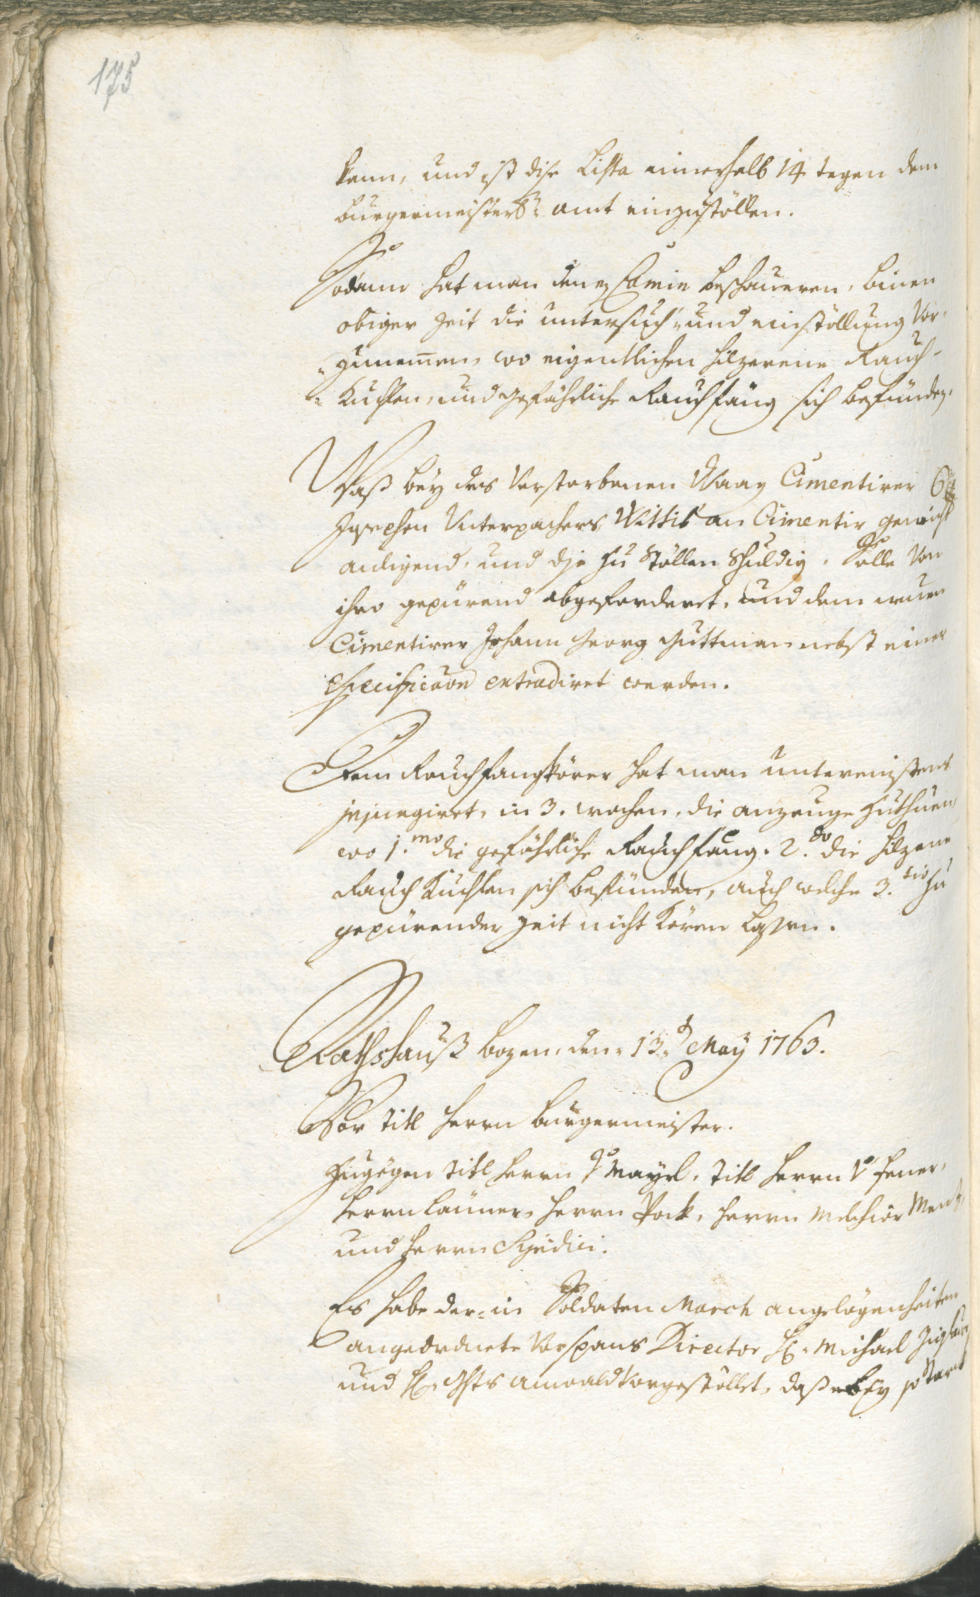 175
kann, und ist dise Lista innerhalb 14 tagen dem
burgermeister amt einzustöllen.
Sodann hat man denen Camin beschaueren, binen
obiger zeit die untersuch- und einstöllung vor-
zunemmen, wo eigentlichen hilzerene Rauch-
Kuchlen, und gefährliche Rauchfäng sich befünden.
Waß bey des Verstorbenen Waag Cimentirer
Josephen Unterpachers Wittib an Ciment gewicht
anligend, und dise zu stöllen schuldig. Solle von
ihro gepürend abgefordert, und dem neuen
Cimentirer Johann Georg Guttman nebst einer
Specification extradiret werden.
Dem Rauchfangkörer hat man untereinstens
injungiret, in 3. wochen, die anzeuge zuthuen,
wo 1.mo die gefährliche Rauchfäng. 2.do die hilzene
Rauch Kuchlen sich befünden, auch welche 3.tio zu
gepürender zeit nicht Kören lassen.
Rathshauß bozen, den 13. May 1763.
Vor Titl herrn burgermeister.
Zugögen Titl herrn Dr Mayrl, Titl herrn
herrn Lanner, herrn Pock, herrn Melchior
und herrn Syndici.
Es habe der in Soldaten March angelögenheiten
angeordnete Vorspans Director H: Michael
und H: anwald vorgestöllet, daß bey so